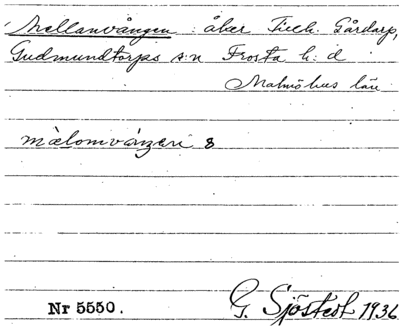 Mellanvången : åker Till. Gårdarp,
Gudmundtorps s:n Frosta h:d
Malmöhus län
mælomvåŋen 8
Nr 5550.
G. Sjöstedt 1936